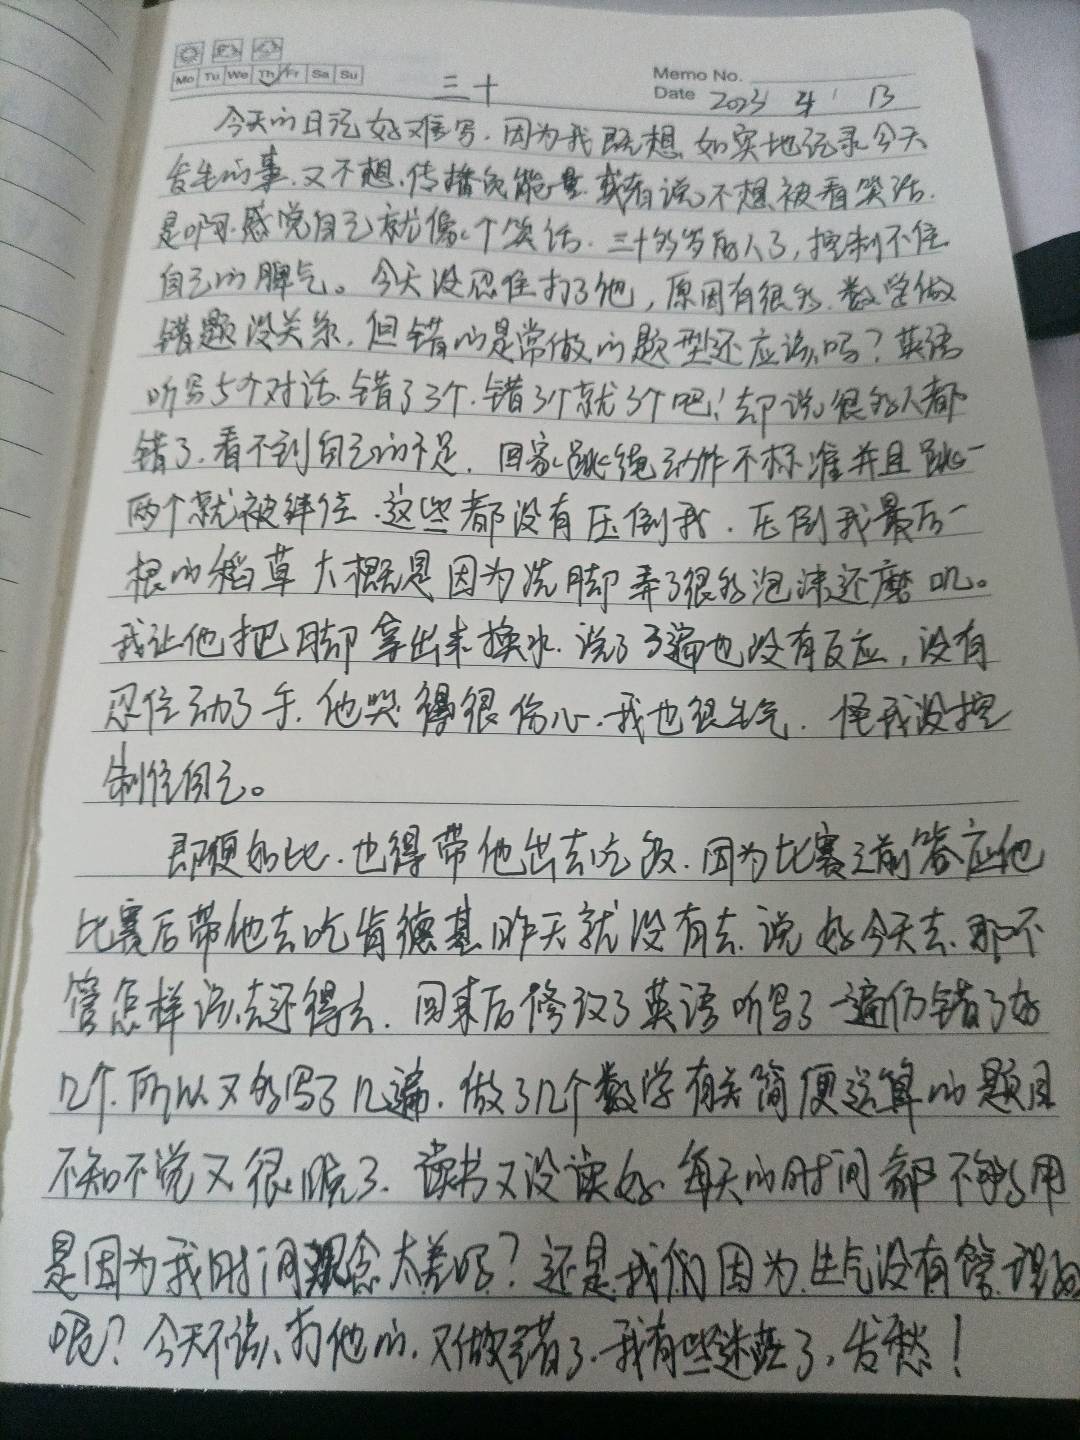 Mo Tu We Th Fr Sa Su
Memo No.
Date 2023 4 13
三十
今天的日记好难写.因为我既想如实地记录今天
发生的事.又不想传播负能量.或者说不想被看笑话.
是啊.感觉自己就像个笑话.三十多岁的人了,控制不住
自己的脾气。今天没忍住打了他,原因有很多.数学做
错题没关系.但错的是常做的题型还应该吗?英语
听写5个对话.错了3个.错3个就3个吧!却说很多人都
错了.看不到自己的不足.回家跳绳动作不标准并且跳一
两个就被绊住.这些都没有压倒我.压倒我最后一
根的稻草大概是因为洗脚弄了很多泡沫还磨叽。
我让他把脚拿出来换水.说了3遍也没有反应,没有
忍住动了手.他哭得很伤心.我也很生气.怪我没控
制住自己。
即便如此.也得带他出去吃饭.因为比赛之前答应他
比赛后带他去吃肯德基.昨天就没有去.说好今天去.那不
管怎样说去还得去.回来后修改了英语听写了一遍仍错了好
几个.所以又多写了几遍.做了几个数学有关简便运算的题目
不知不觉又很晚了.读书又没读好.每天的时间都不够用
是因为我时间观念太差吗?还是我们因为生气没有管理好
呢?今天不该打他的.又做错了.我有些迷茫了,发愁!